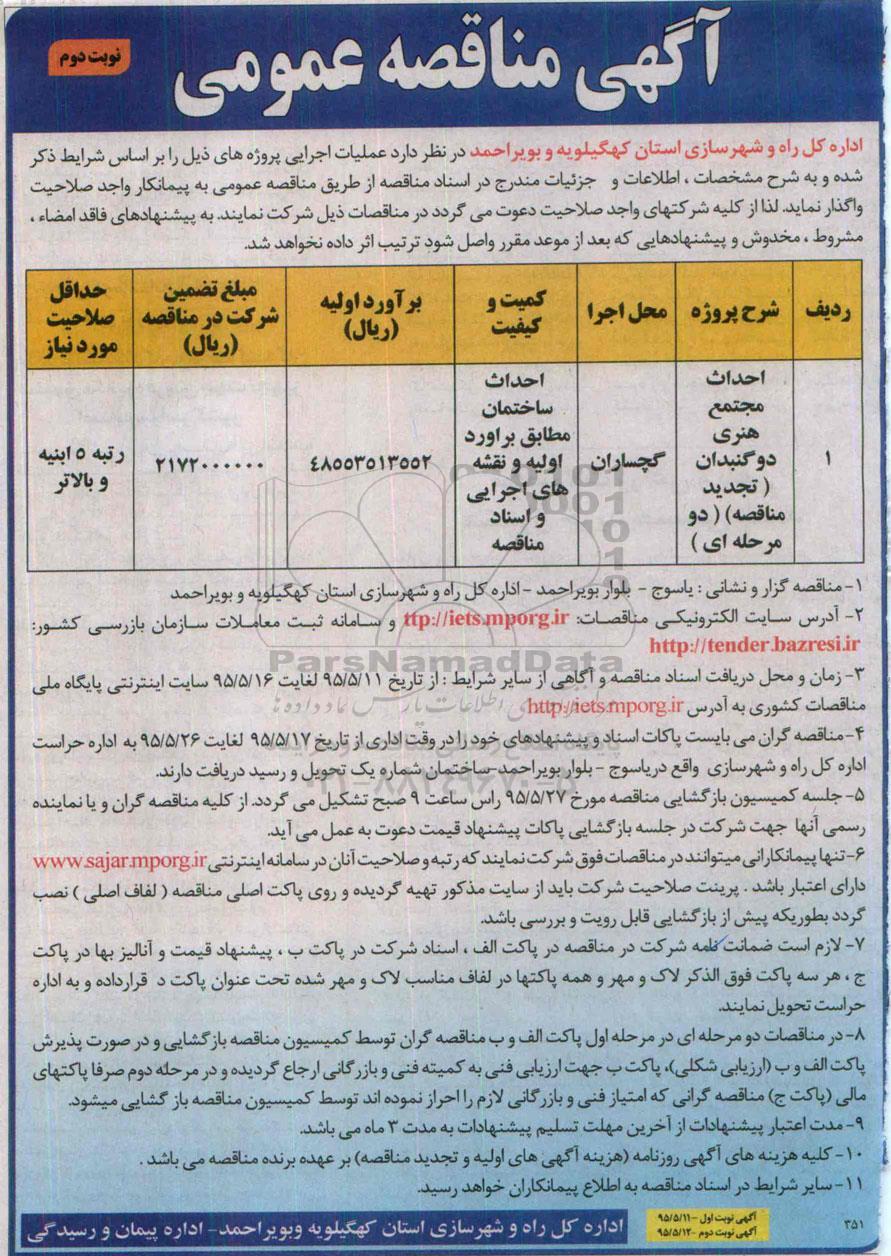 آگهی مناقصه عمومی
نوبت دوم
اداره کل راه و شهرسازی استان کهگیلویه و بویراحمد در نظر دارد عملیات اجرایی پروژه های ذیل را بر اساس شرایط ذکر
شده و به شرح مشخصات ، اطلاعات و جزئیات مندرج در اسناد مناقصه از طریق مناقصه عمومی به پیمانکار واجد صلاحیت
واگذار نماید. لذا از کلیه شرکتهای واجد صلاحیت دعوت می گردد در مناقصات ذیل شرکت نمایند. به پیشنهادهای فاقد امضاء ،
مشروط ، مخدوش و پیشنهادهایی که بعد از موعد مقرر واصل شود ترتیب اثر داده نخواهد شد.
ردیف
شرح پروژه
محل اجرا
کمیت و
کیفیت
برآورد اولیه
(ریال)
مبلغ تضمین
شرکت در مناقصه
(ریال)
حداقل
صلاحیت
مورد نیاز
۱
احداث
مجتمع
هنری
دوگنبدان
( تجدید
مناقصه) ( دو
مرحله ای )
گچساران
احداث
ساختمان
مطابق براورد
اولیه و نقشه
های اجرایی
و اسناد
مناقصه
٤٨۵۵۳۵۱۳۵۵۲
۲۱۷۲۰۰۰۰۰۰
رتبه ۵ ابنیه
و بالاتر
۱- مناقصه گزار و نشانی : یاسوج - بلوار بویراحمد - اداره کل راه و شهرسازی استان کهگیلویه و بویراحمد
۲- آدرس سایت الکترونیکی مناقصات: ttp://iets.mporg.ir و سامانه ثبت معاملات سازمان بازرسی کشور:
http://tender.bazresi.ir
۳- زمان و محل دریافت اسناد مناقصه و آگاهی از سایر شرایط : از تاریخ ۹۵/۵/۱۱ لغایت ۹۵/۵/۱۶ سایت اینترنتی پایگاه ملی
مناقصات کشوری به آدرس http://iets.mporg.ir
۴-مناقصه گران می بایست پاکات اسناد و پیشنهادهای خود را در وقت اداری از تاریخ ۹۵/۵/۱۷ لغایت ۹۵/۵/۲۶ به اداره حراست
اداره کل راه و شهرسازی واقع دریاسوج - بلوار بویراحمد-ساختمان شماره یک تحویل و رسید دریافت دارند.
۵- جلسه کمیسیون بازگشایی مناقصه مورخ ۹۵/۵/۲۷ راس ساعت ۹ صبح تشکیل می گردد. از کلیه مناقصه گران و یا نماینده
رسمی آنها جهت شرکت در جلسه بازگشایی پاکات پیشنهاد قیمت دعوت به عمل می آید.
۶-تنها پیمانکارانی میتوانند در مناقصات فوق شرکت نمایند که رتبه و صلاحیت آنان در سامانه اینترنتی www.sajar.mporg.ir
دارای اعتبار باشد . پرینت صلاحیت شرکت باید از سایت مذکور تهیه گردیده و روی پاکت اصلی مناقصه ( لفاف اصلی ) نصب
گردد بطوریکه پیش از بازگشایی قابل رویت و بررسی باشد.
۷- لازم است ضمانت نامه شرکت در مناقصه در پاکت الف ، اسناد شرکت در پاکت ب ، پیشنهاد قیمت و آنالیز بها در پاکت
ج ، هر سه پاکت فوق الذکر لاک و مهر و همه پاکتها در لفاف مناسب لاک و مهر شده تحت عنوان پاکت د قرارداده و به اداره
حراست تحویل نمایند.
۸- در مناقصات دو مرحله ای در مرحله اول پاکت الف و ب مناقصه گران توسط کمیسیون مناقصه بازگشایی و در صورت پذیرش
پاکت الف و ب (ارزیابی شکلی)، پاکت ب جهت ارزیابی فنی به کمیته فنی و بازرگانی ارجاع گردیده و در مرحله دوم صرفا پاکتهای
مالی (پاکت ج) مناقصه گرانی که امتیاز فنی و بازرگانی لازم را احراز نموده اند توسط کمیسیون مناقصه باز گشایی میشود.
۹- مدت اعتبار پیشنهادات از آخرین مهلت تسلیم پیشنهادات به مدت ۳ ماه می باشد.
۱۰- کلیه هزینه های آگهی روزنامه (هزینه آگهی های اولیه و تجدید مناقصه) بر عهده برنده مناقصه می باشد .
۱۱- سایر شرایط در اسناد مناقصه به اطلاع پیمانکاران خواهد رسید.
۳۵۱
آگهی نوبت اول -۹۵/۵/۱۱
آگهی نوبت دوم -۹۵/۵/۱۲
اداره کل راه و شهرسازی استان کهگیلویه وبویراحمد- اداره پیمان و رسیدگی
ParsNamadData